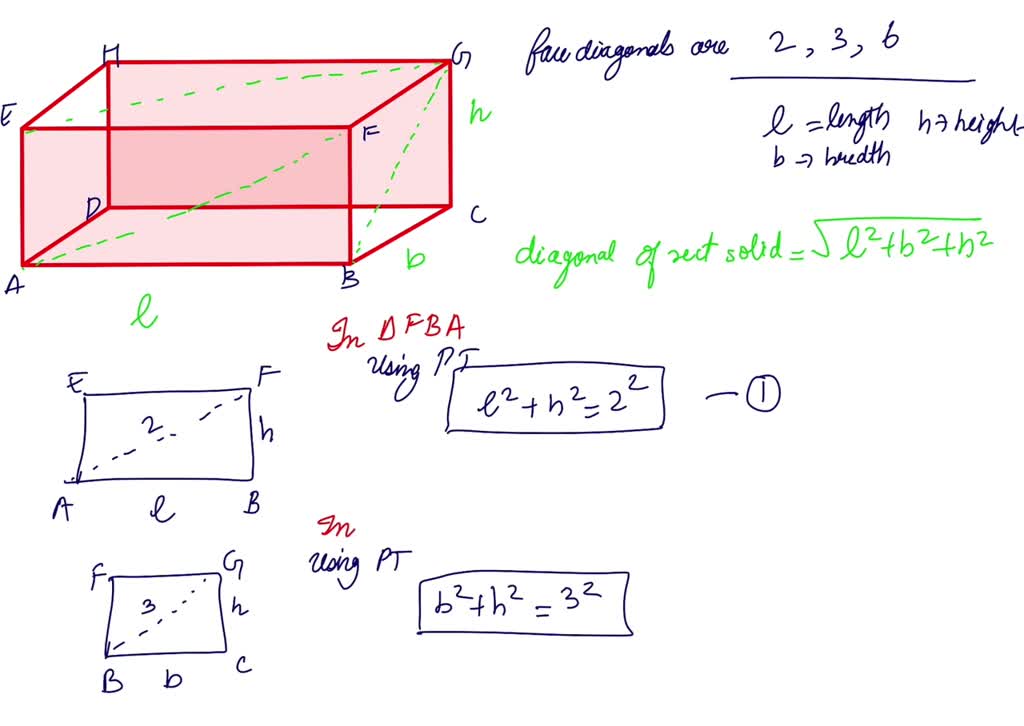 H
G
E
F
h
D
C
A
B
b
l
face diagonals are 2, 3, 6
l = length h → height
b → bredth
diagonal of rect solid = √l²+b²+h²
In Δ FBA
Using PT
l² + h² = 2² — ①
E F
2
h
A l B
In
Using PT
b² + h² = 3²
F G
3
h
B b C